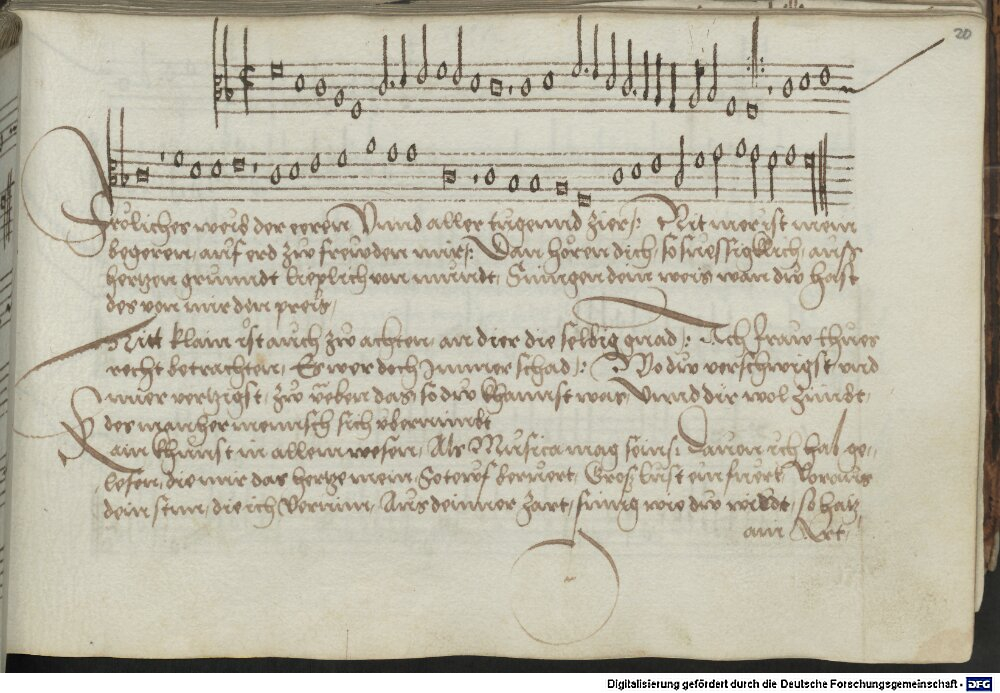 20
Fröliches weib der eeren Vnnd aller tugennd zier Nit mer ist mein
begeren, auf erd zw frewden mir Dan hören dich, so fuessigklich, auss
hertzen grunndt lieplich von mundt, Suingen dein weis wan dw hast
des von mir den preis,
Nitt klain ist auch zw achten, an dier die seldig gnad Ach fraw thues
recht betrachten, Es wer doch immer schad Wo dw verschwigst, vnd
nuer vertzigst, zw ueben das so dw khannst was, Vnnd dir wol zimdt,
des mancher mennsch sich vbernimbt
Kain khunst in allem wesen, Als Musica mag sein Dauon ich hab ge-
lesen, die mir das hertze mein, So tewf berüert, Gros lust einfüert, Voraus
dein stim, die ich vernim, Aus deinner zart, suing wie dw wildt, so hatz
ain Art,
Digitalisierung gefördert durch die Deutsche Forschungsgemeinschaft - DFG